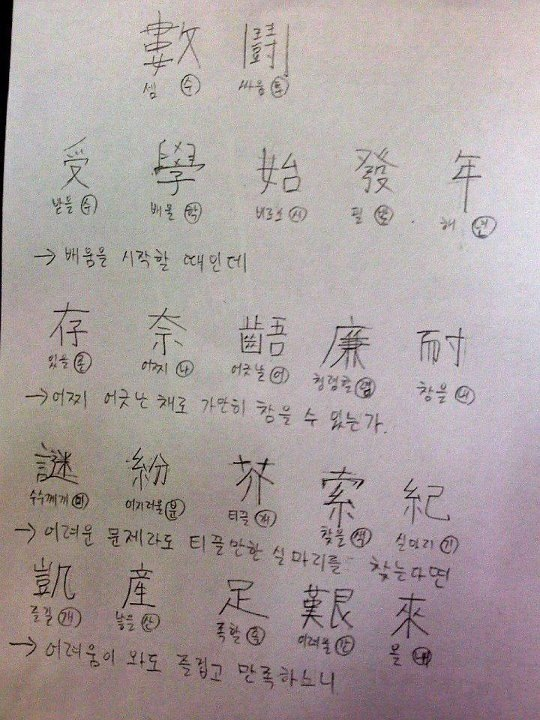 數 鬪
셈 수 싸움 투
受 學 始 發 年
받을 수 배울 학 비로소 시 필 발 해 년
→ 배움을 시작할 때인데
存 奈 齬 廉 耐
있을 존 어찌 나 어긋날 어 청렴할 염 참을 내
→ 어찌 어긋난 채로 가만히 참을 수 있는가.
謎 紛 芥 索 紀
수수께끼 미 어지러울 분 티끌 개 찾을 색 실마리 기
→ 어려운 문제라도 티끌만한 실마리를 찾는다면
凱 産 足 艱 來
즐길 개 낳을 산 족할 족 어려울 간 올 내
→ 어려움이 와도 즐겁고 만족하노니